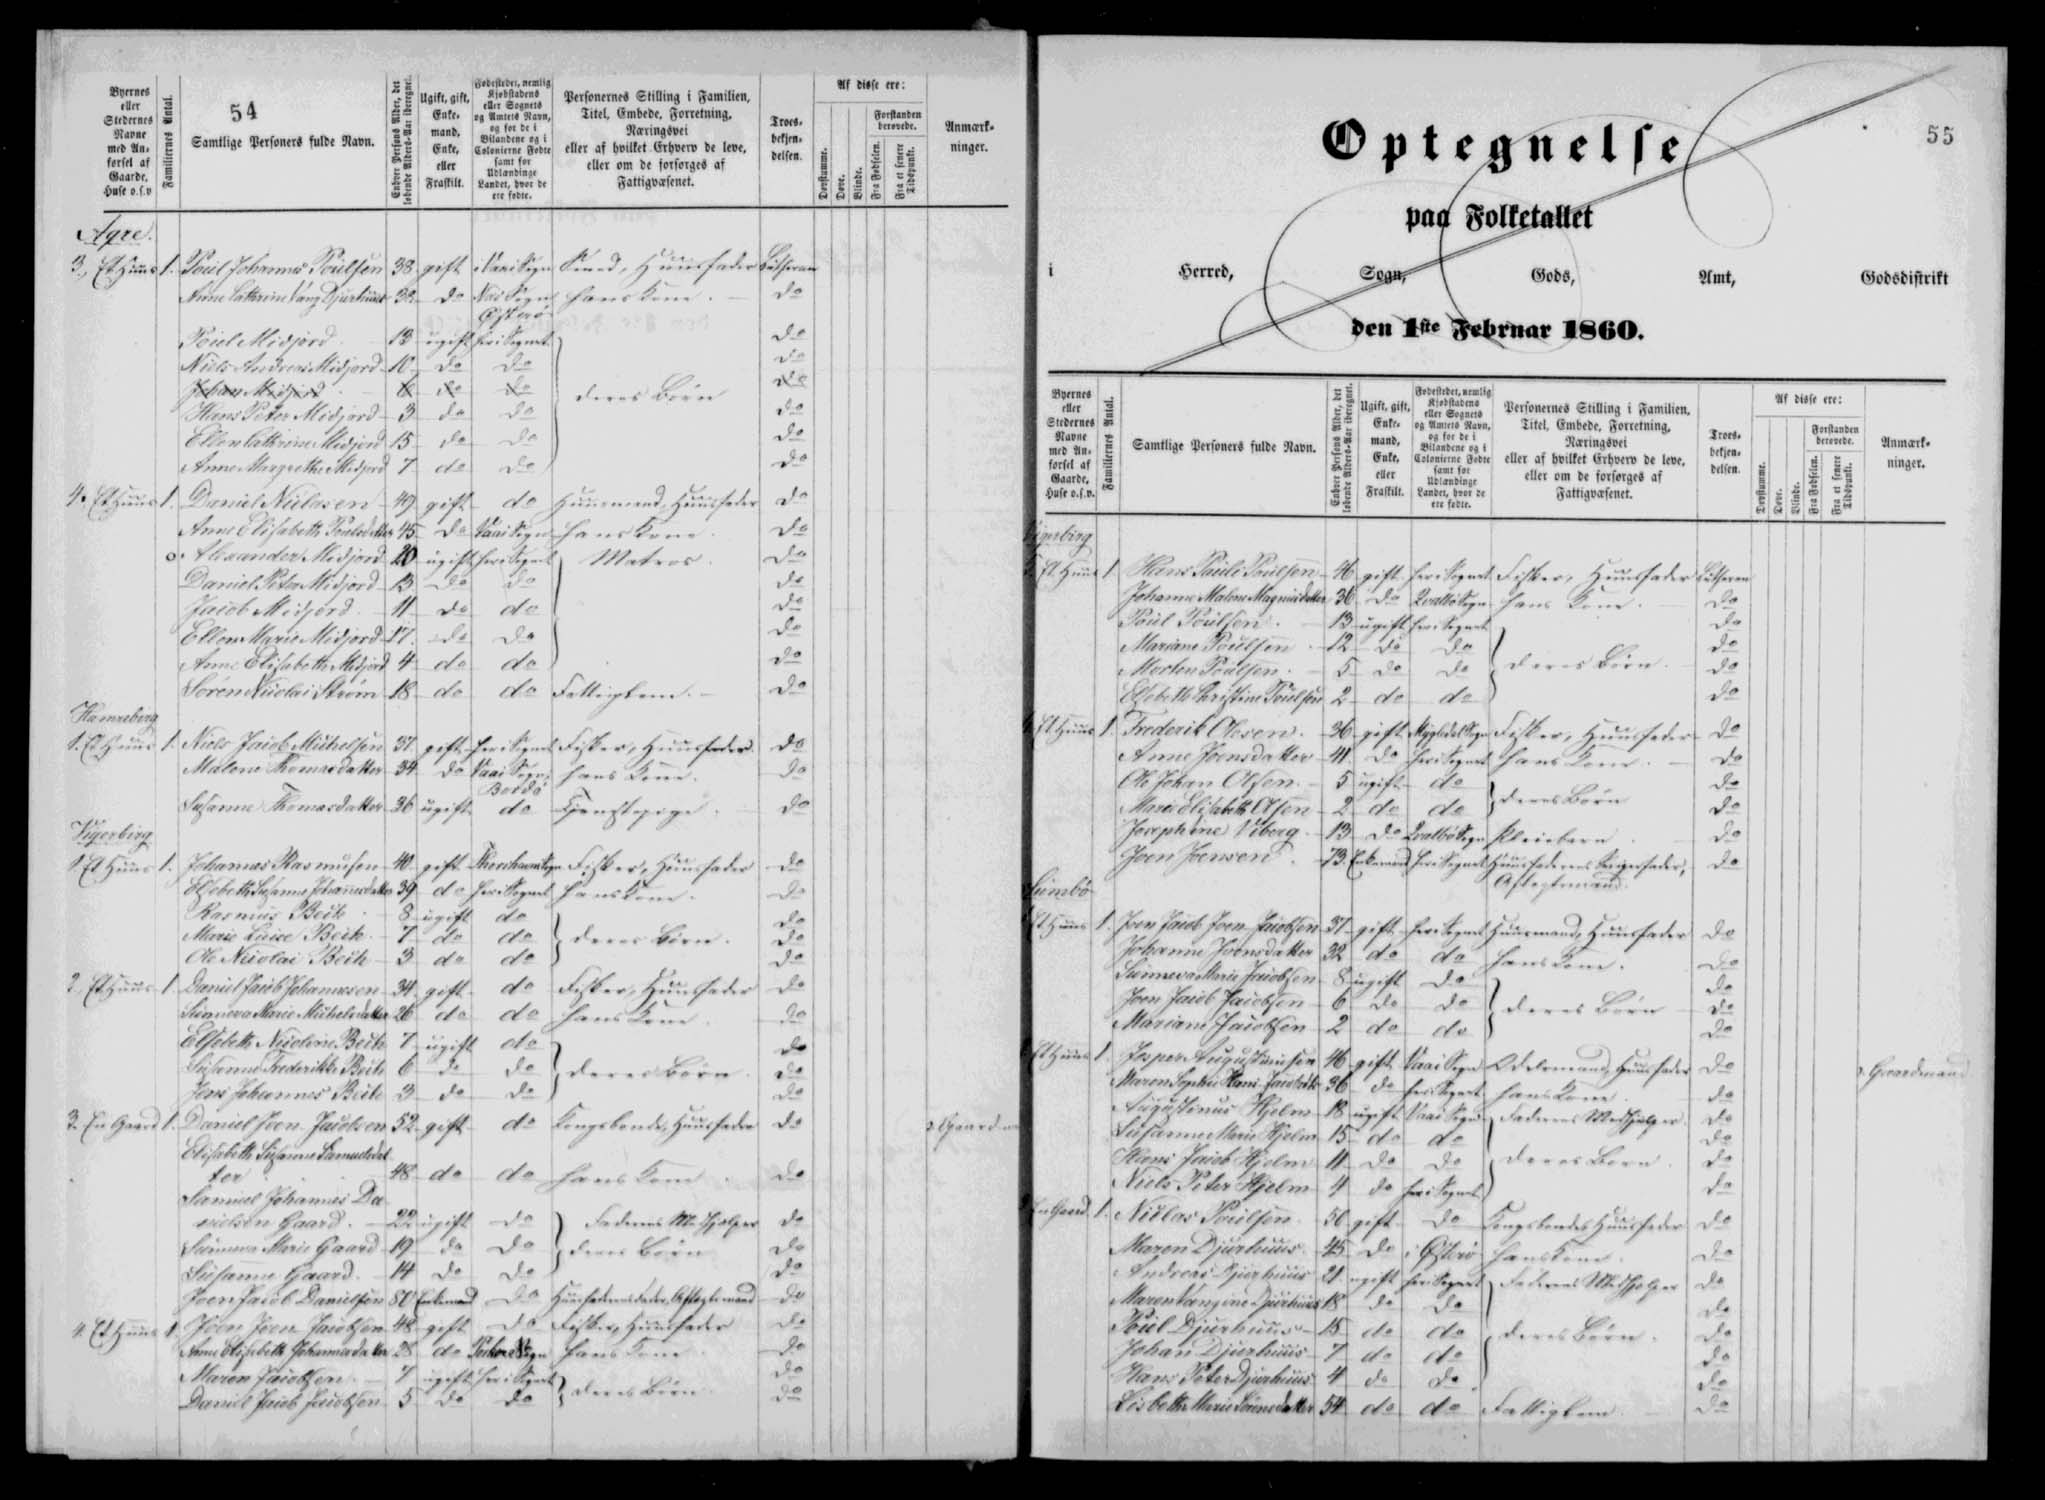 54
Byernes eller Stedernes Navne med Anførsel af Gaarde, Huse o.s.v
Familiernes Antal.
Samtlige Personers fulde Navn.
Enhver Persons Alder, det løbende Alders-Aar iberegnet.
Ugift, gift, Enkemand, Enke, eller Fraskilt.
Fødestedet, nemlig Kjøbstadens eller Sognets og Amtets Navn, og for de i Bilandene og i Colonierne Fødte samt for Udlændinge Landet, hvor de ere fødte.
Personernes Stilling i Familien, Titel, Embede, Forretning, Næringsvei eller af hvilket Erhverv de leve, eller om de forsørges af Fattigvæsenet.
Troesbekjendelsen.
Af disse ere:
Døvstumme.
Døve.
Blinde.
Forstanden berøvede.
Fra Fødselen.
Fra et senere Tidspunkt.
Anmærkninger.
3, Et Huus 1. Poul Johannes Poulsen 38 gift Huusfader Luthersn
Anne Cathrine Djurhuus 32 do Østerø hans Kone. do
Poul Midjord 13 ugift her i Sognet do
Niels Andreas Midjord 10 do do do
Johan Midjord 6 do do do
Hans Peter Midjord 3 do do deres Børn do
Ellen Cathrine Midjord 15 do do do
Anne Margrethe Midjord 7 do do do
4, Et Huus 1. Daniel Niclasen 49 gift do Huusmand, Huusfader do
Anne Elisabeth Poulsdatter 45 do Vaai Sogn hans Kone. do
o Alexander Midjord 20 ugift her i Sognet Matros. do
Daniel Peter Midjord 13 do do do
Jacob Midjord 11 do do do
Ellen Marie Midjord 17 do do do
Anne Elisabeth Midjord 4 do do do
Søren Nicolai Strøm 18 do do Fattiglem. do
Hamreberg
1. Et Huus 1. Niels Jacob Michelsen 37 gift her i Sognet Fisker, Huusfader do
Malene Thomasdatter 34 do Vaai Sogn, Bordø hans Kone. do
Susanne Thomasdatter 36 ugift do Tjenestepige do
Vigerbirg
1. Et Huus 1. Johannes Rasmusen 40 gift Thorshavn Sogn Fisker, Huusfader do
Elsebeth Susanne Johannesdatter 39 do her i Sognet hans Kone. do
Rasmus Bech 8 ugift do do
Marie Luise Bech 7 do do deres Børn. do
Ole Nicolai Bech 3 do do do
2, Et Huus 1. Daniel Jacob Johannesen 34 gift do Fisker, Huusfader do
Sunneva Marie Michelsdatter 26 do do hans Kone. do
Elsebeth Nicoline Bech 7 ugift do do
Susanne Frederikke Bech 6 do do deres Børn. do
Jens Johannes Bech 3 do do do
3. En Gaard 1. Daniel Joen Jacobsen 52 gift do Kongsbonde, Huusfader do
Elisabeth Susanne Samuelsdatter 48 do do hans Kone do
Samuel Johannes Danielsen Gaard. 22 ugift do Faderens Medhjælper do
Sunneva Marie Gaard 19 do do deres Børn do
Susanne Gaard. 14 do do do
Joen Jacob Danielsen 80 Enkemand do Huusfaderens Fader, Aftægtsmand do
4. Et Huus 1. Joen Joen Jacobsen 42 gift do Fisker, Huusfader do
Anne Elisabeth Johannesdatter 28 do hans Kone do
Maren Jacobsen. 7 ugift her i Sognet do
Daniel Jacob Jacobsen 5 do do deres Børn. do
55
Optegnelse
paa Folketallet
i Herred, Sogn, Gods, Amt, Godsdistrikt
den 1ste Februar 1860.
Byernes eller Stedernes Navne med Anførsel af Gaarde, Huse o.s.v.
Familiernes Antal.
Samtlige Personers fulde Navn.
Enhver Persons Alder, det løbende Alders-Aar iberegnet.
Ugift, gift, Enkemand, Enke, eller Fraskilt.
Fødestedet, nemlig Kjøbstadens eller Sognets og Amtets Navn, og for de i Bilandene og i Colonierne Fødte samt for Udlændinge Landet, hvor de ere fødte.
Personernes Stilling i Familien, Titel, Embede, Forretning, Næringsvei eller af hvilket Erhverv de leve, eller om de forsørges af Fattigvæsenet.
Troesbekjendelsen.
Af disse ere:
Døvstumme.
Døve.
Blinde.
Forstanden berøvede.
Fra Fødselen.
Fra et senere Tidspunkt.
Anmærkninger.
Vigerbirg
5. Et Huus 1 Hans Pauli Poulsen 46 gift her i Sognet Fisker, Huusfader Luthersn
Johanne Malene Magnusdatter 36 do Qvalbø Sogn hans Kone. do
Poul Poulsen 13 ugift her i Sognet do
Mariane Poulsen 12 do do do
Morten Poulsen 5 do do deres Børn. do
Elsebeth Christine Poulsen 2 do do do
Et Huus 1. Frederik Olesen. 36 gift Fisker, Huusfader do
Anne Joensdatter 41 do her i Sognet hans Kone. do
Ole Johan Olsen. 5 ugift do do
Maria Elisabeth Olsen 2 do do deres Børn do
Josephine Viberg 13 do Qvalbø Sogn Pleiebarn do
Joen Joensen 73 Enkemand her i Sognet Huusfaderens Svigerfader, Aftægtsmand. do
Sumbø
Et Huus 1. Joen Jacob Joen Jacobsen 37 gift her i Sognet Huusmand, Huusfader do
Johanne Joensdatter 32 do do hans Kone. do
Sunneva Marie Jacobsen 8 ugift do do
Joen Jacob Jacobsen 6 do do deres Børn do
Mariane Jacobsen 2 do do do
Et Huus 1. Jesper Augustinusen 46 gift Vaai Sogn Odelsmand, Huusfader do Gaardmand
Maren Sophie 36 do her i Sognet hans Kone do
Augustinus Hjelm 18 ugift Vaai Sogn Faderens Medhjælper. do
Susanne Marie Hjelm 15 do do do
Hans Jacob Hjelm 11 do do deres Børn. do
Niels Peter Hjelm 4 do her i Sognet do
En Gaard 1. Niclas Poulsen 56 gift do Kongsbonde, Huusfader do
Maren Djurhuus 45 do i Østerø hans Kone. do
Andreas Djurhuus 21 ugift her i Sognet Faderens Medhjælper do
Maren Djurhuus 18 do do do
Poul Djurhuus 15 do do deres Børn. do
Johan Djurhuus 7 do do do
Hans Peter Djurhuus 4 do do do
Lisbeth Marie 54 do do Fattiglem do